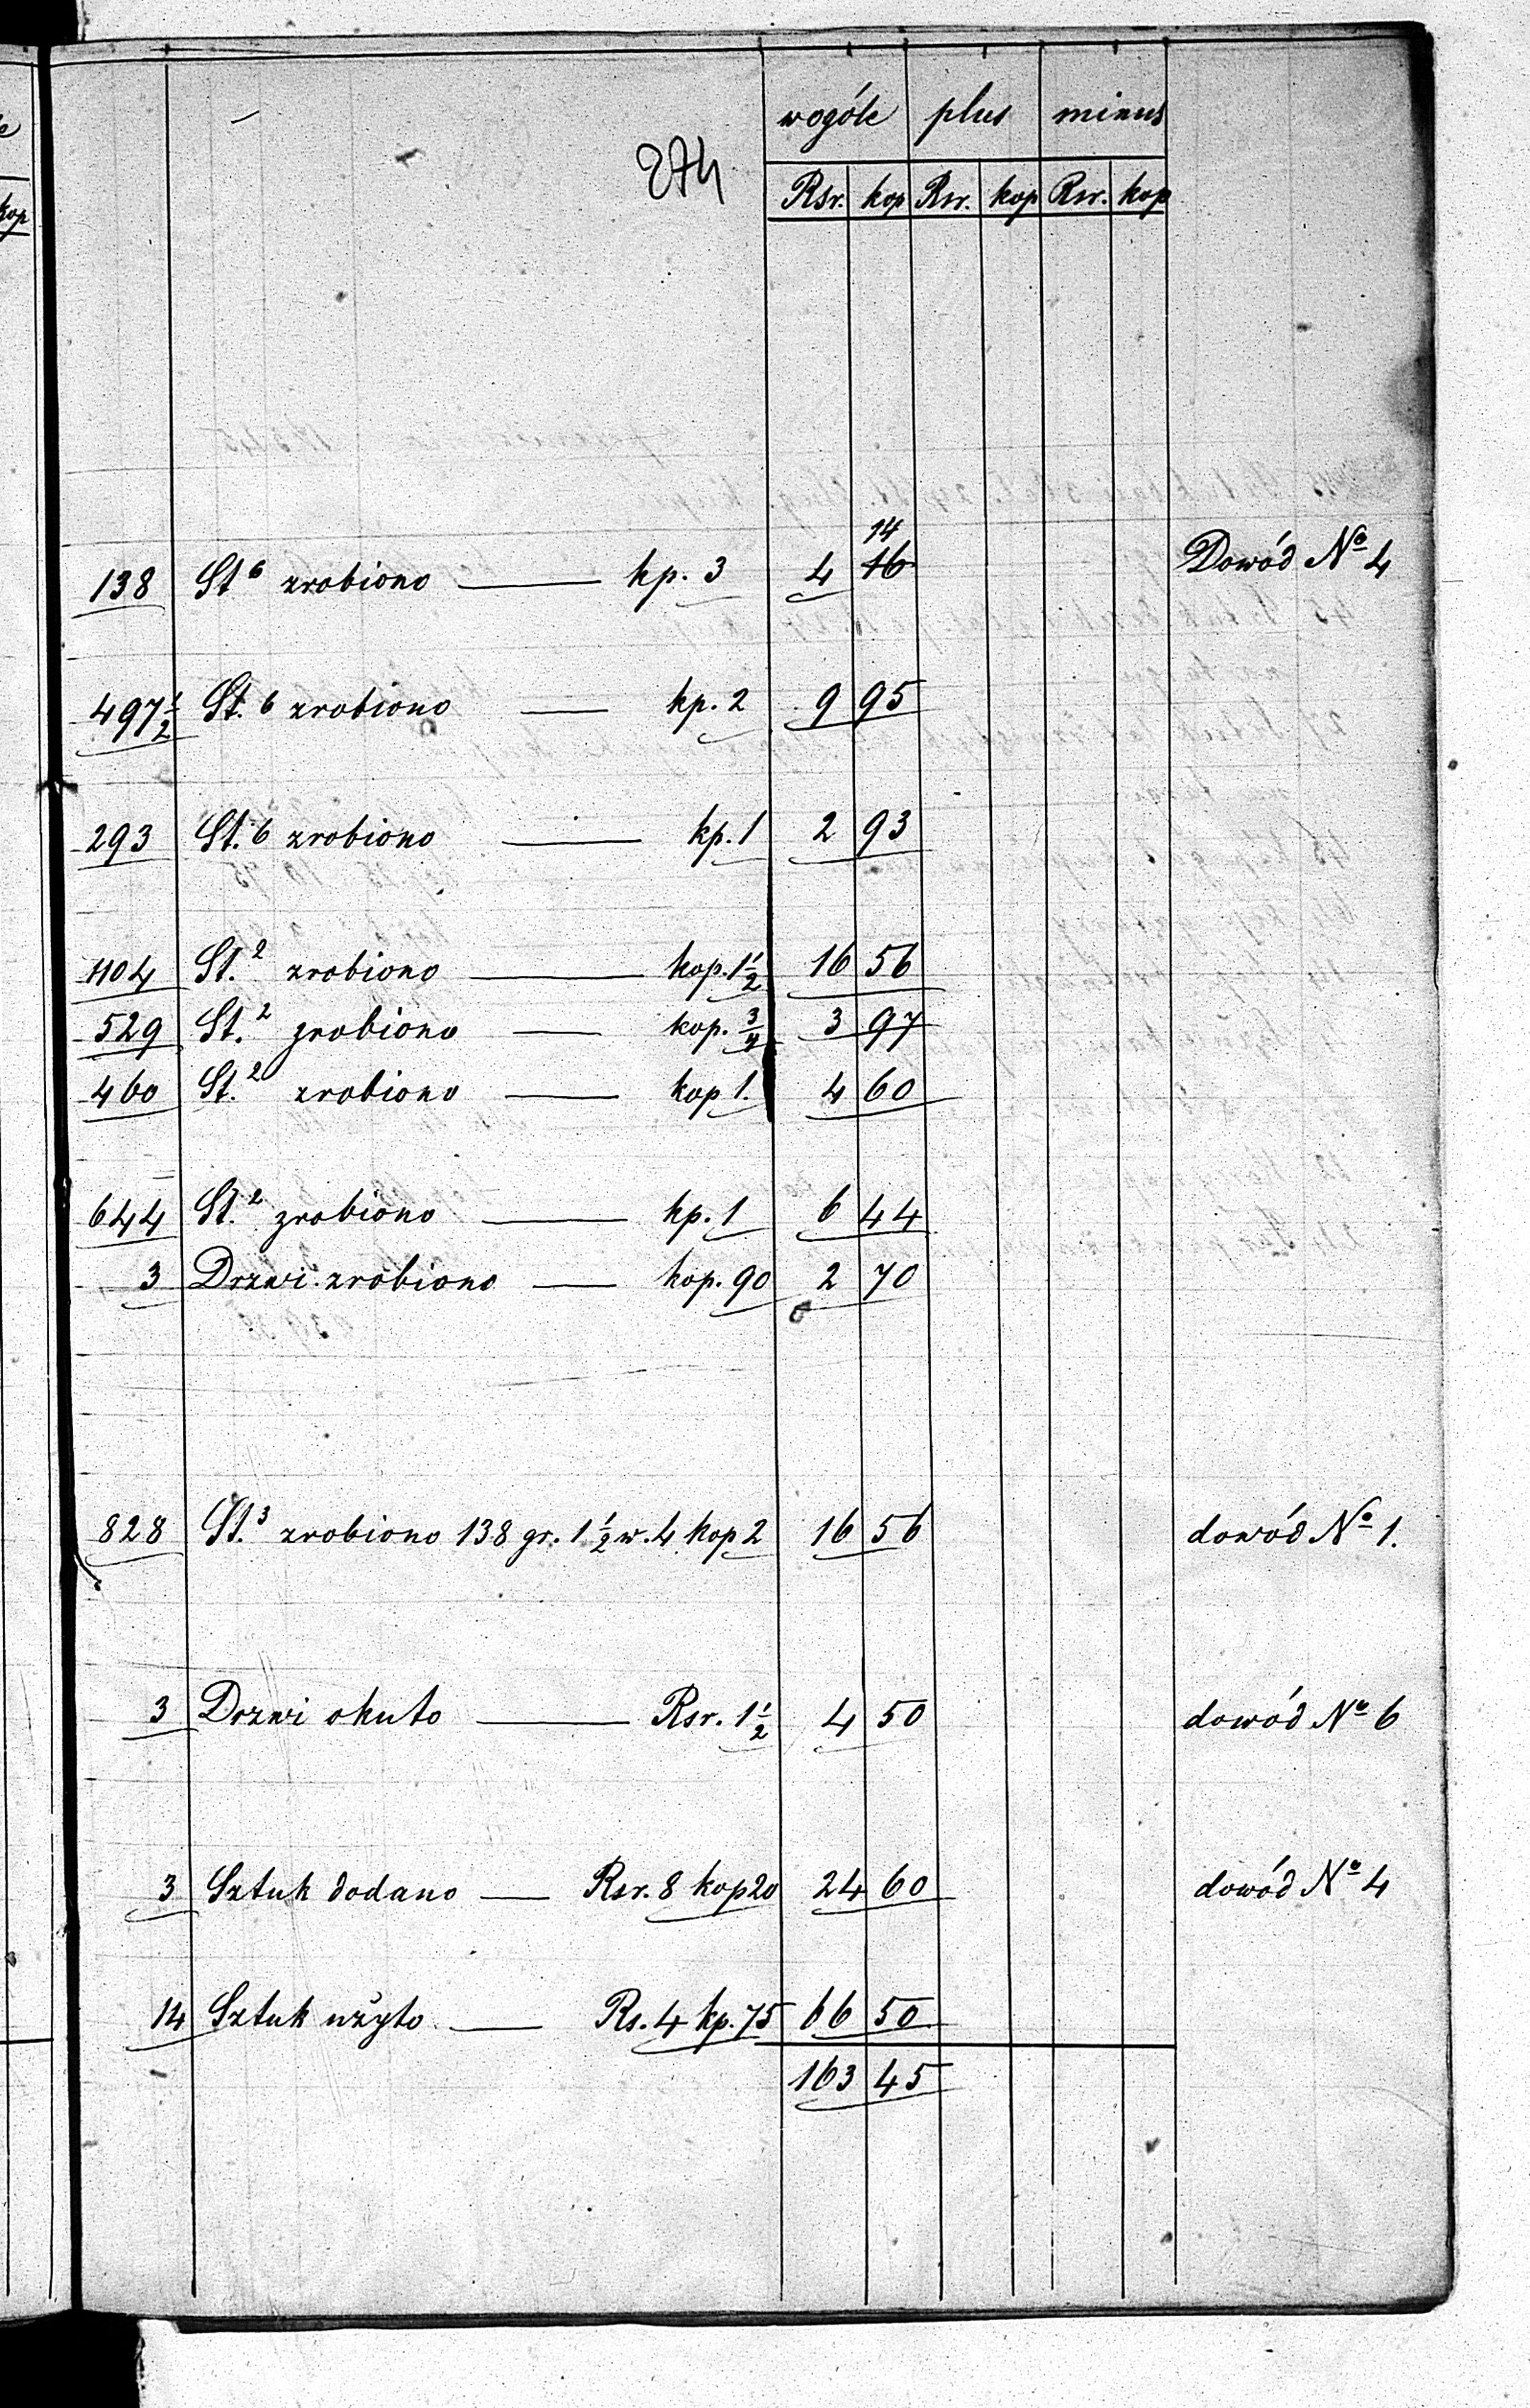 274
wogóle plus minus
Rsr. kop Rsr. kop Rsr. kop
14
138 St 6 zrobiono — kp. 3 4 16 Dowód No 4
497 1/2 St. 6 zrobiono — kp. 2 9 95
293 St. 6 zrobiono — kp. 1 2 93
1104 St. 2 zrobiono — kop. 1 1/2 16 56
529 St. 2 zrobiono — kop. 3/4 3 97
460 St. 2 zrobiono — kop 1. 4 60
644 St. 2 zrobiono — kp. 1 6 44
3 Drzwi zrobiono — kop. 90 2 70
828 St. 3 zrobiono 138 gr. 1 1/2 w. 4 kop 2 16 56 dowód No 1.
3 Drzwi okuto — Rsr. 1 1/2 4 50 dowód No 6
3 Sztuk dodano — Rsr. 8 kop 20 24 60 dowód No 4
14 Sztuk użyto — Rs. 4 kp. 75 66 50
163 45